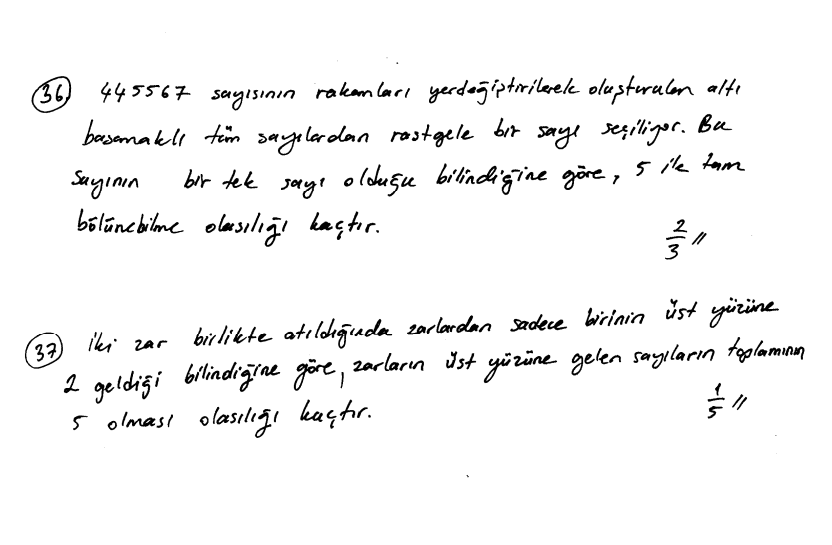 36) 445567 sayısının rakamları yerdeğiştirilerek oluşturulan altı
basamaklı tüm sayılardan rastgele bir sayı seçiliyor. Bu
sayının bir tek sayı olduğu bilindiğine göre, 5 ile tam
bölünebilme olasılığı kaçtır.
2/3 //
37) iki zar birlikte atıldığında zarlardan sadece birinin üst yüzüne
2 geldiği bilindiğine göre, zarların üst yüzüne gelen sayıların toplamının
5 olması olasılığı kaçtır.
1/5 //